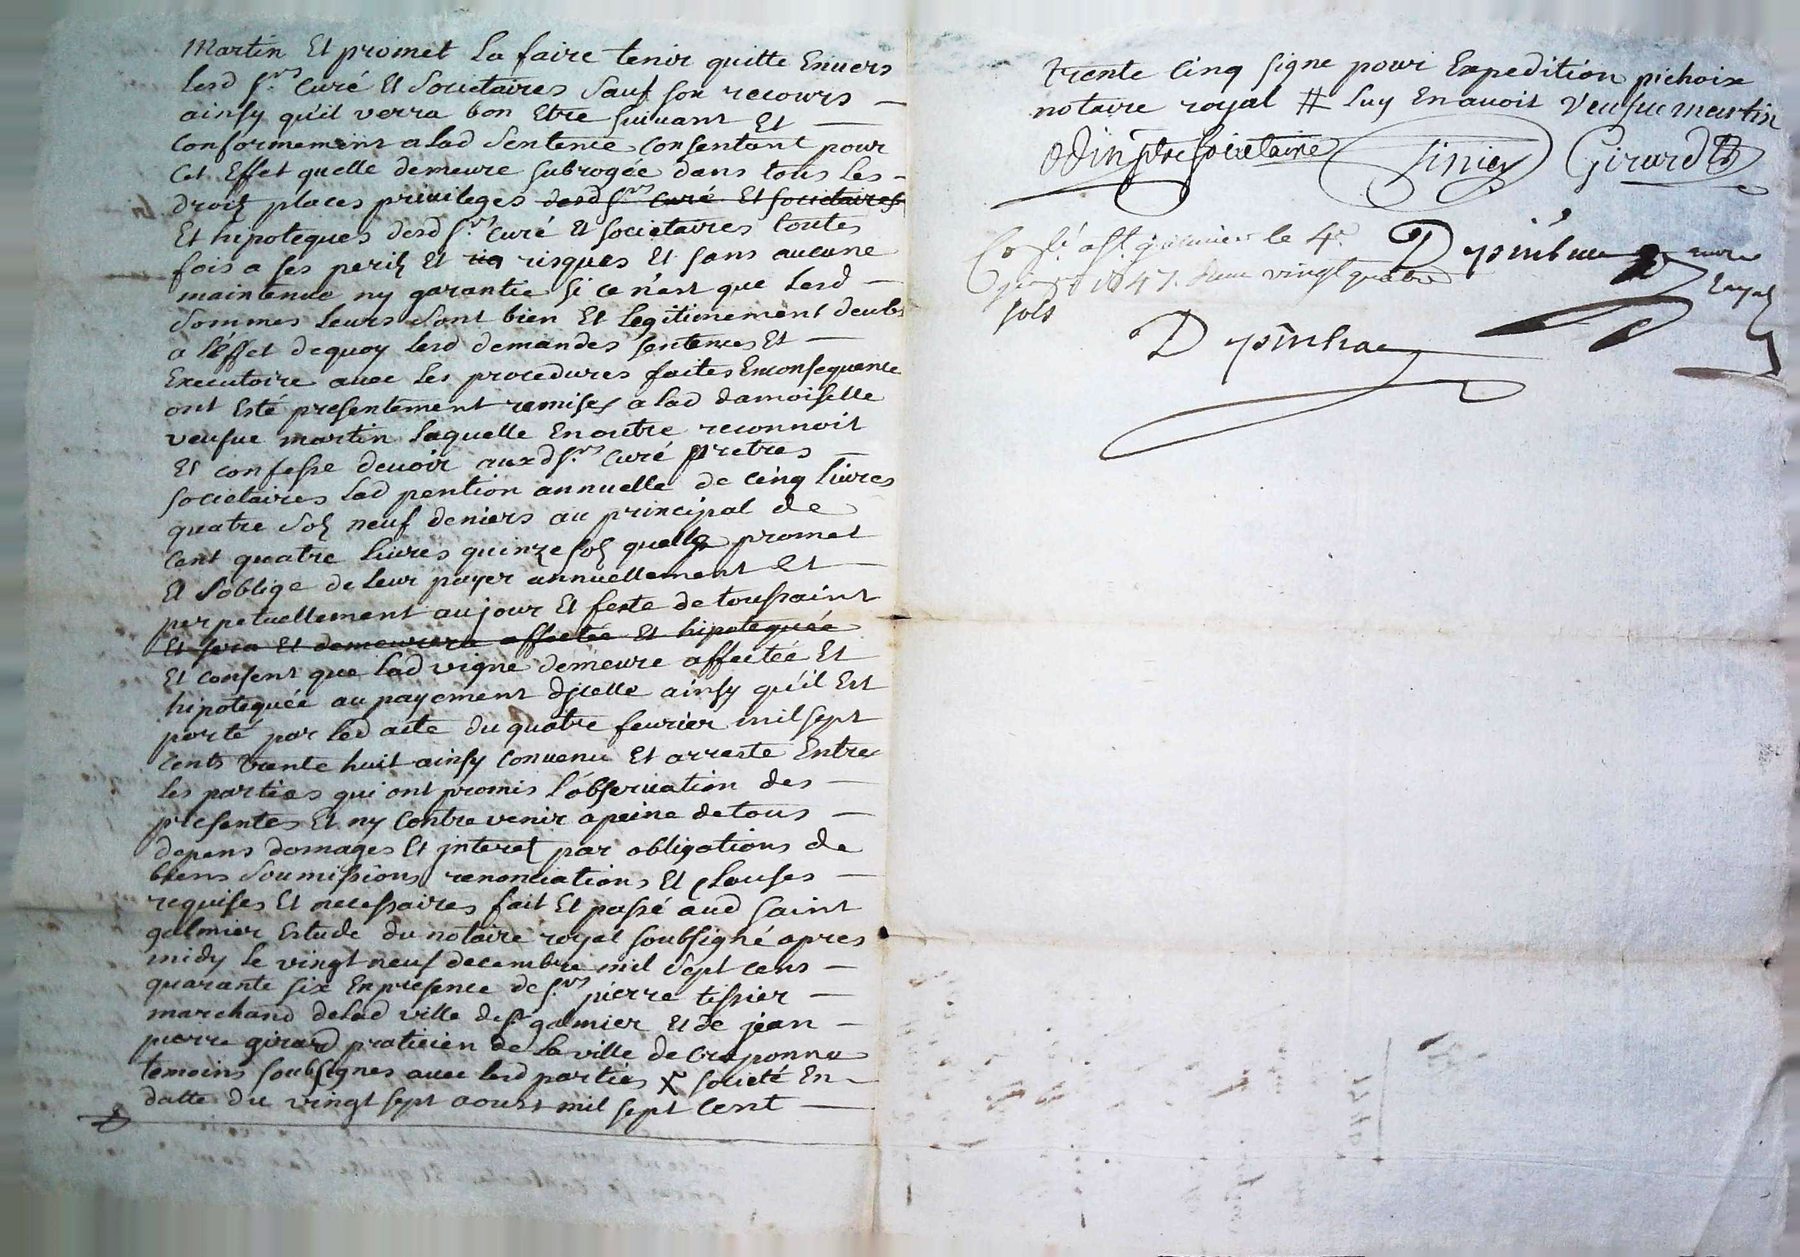 Martin Et promet La faire tenir quitte Envers
Lesd Srs Curé Et Societaires Sauf son recours —
ainsy qu'il verra bon Etre suivant Et —
Conformement a lad Sentence Consentant pour
Cet Effet quelle demeure subrogée dans tous Les -
droits places privileges desd Srs Curé Et societaires
Et hipoteques desd Srs Curé Et societaires toutes
fois a ses perils Et risques Et sans aucune
maintenue ny garantie si ce n'est que Lesd —
sommes Leurs sont bien Et Legitimement deubs
a l'éffet dequoy Lesd demandes sentences Et —
Executoire avec Les procedures faites Enconsequence
ont Esté presentement remises a lad damoiselle
veufue martin Laquelle En outre reconnoit
Et confesse devoir auxd Srs Curé pretres —
societaires Lad pention annuelle de Cinq Livres
quatre sols neuf deniers au principal de
Cent quatre Livres quinze sols quelle promet
Et s'oblige de Leur payer annuellement Et —
perpetuellement au jour Et feste de toussaint
Et sera Et demeurera affectée Et hipotequée
Et consent que Lad vigne demeure affectée Et
hipotequée au payement djcelle ainsy qu'il Est
porté par Led acte du quatre feurier mil sept
Cents trente huit ainsy convenu Et arresté Entre
Les parties qui ont promis L'observation des —
presentes Et ny Contrevenir a peine de tous —
depens domages Et jnterets par obligations de
biens soumissions renonciations Et Clauses —
requises Et necessaires fait Et passé aud saint
galmier Estude du notaire royal soubsigné apres
midy Le vingt neuf decembre mil sept cens —
quarante six En presence de Srs pierre tissier —
marchand de Lad ville de St galmier Et de jean —
pierre girard praticien de La ville de Craponne
temoins soubsignes avec Lesd parties X societé En -
datte du vingt sept aoust mil sept Cent —
trente Cinq signe pour Expedition pichoix
notaire royal # Luy En avoit Veufue martin
Odin ptre societaire Tissier Girard
Colé a St galmier le 4e Depinhac nore
janer 1747. Reçu vingt quatre royal
sols
Depinhac